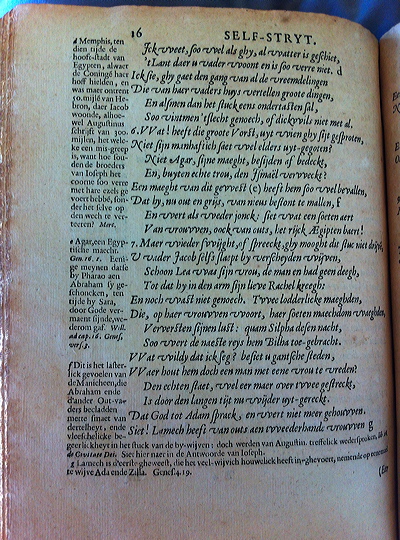 16 SELF-STRYT.
Ick weet, soo wel als ghy, al watter is geschiet,
't Lant daer u vader woont en is soo verre niet. d
Ick sie, ghy gaet den gang van al de vreemdelingen
Die van haer vaders huys vertellen groote dingen,
En alsmen dan het stuck eens ondertasten sal,
Soo vintmen 't slecht genoech, of dickwils niet met al.
6. VVat! heeft die groote Vorst, uyt wien ghy sijt gesproten,
Niet sijn manhaftich saet wel elders uyt-gegoten?
Niet Agar, sijne maeght, besijden af bedeckt,
En, buyten echte trou, den Ismaël verweckt?
Een maeght van dit gewest (e) heeft hem soo wel bevallen,
Dat hy, nu out en grijs, van nieus bestont te mallen, f
En wert als weder jonck: siet wat een soeten aert
Van vrouwen, oock van outs, het rijck Ægipten baert!
7. Maer weder swijght, of spreeckt, ghy mooght dit stuc niet
U vader Jacob selfs slaept by verscheyden wijven,
Schoon Lea was sijn vrou, de man en had geen deegh,
Tot dat hy in den arm sijn lieve Rachel kreegh:
En noch wast niet genoech. Twee lodderlicke maeghden,
Die, op haer vrouwen woort, haer soeten maechdom waeghden,
Ververschten sijnen lust: quam Silpha desen nacht,
Soo wert de naeste reys hem Bilha toe-gebracht.
VVat wildy dat ick seg? besiet u gantsche steden,
VVaer hout hem doch een man met eene vrou te vreden?
Den echten staet, wel eer maer over twee gestreckt,
Is door den langen tijt nu wijder uyt-gereckt.
Dat God tot Adam sprack, en wert niet meer gehouwen.
Siet! Lamech heeft van outs aen tweederhande vrouwen g
d Memphis, ten
dien tijde de
hooft-stadt van
Egypten, alwaer
de Coningh haer
hoff hielden, en
was maer ontrent
50. mijlē van He-
bron, daer Iacob
woonde, alhoe-
wel Augustinus
schrijft van 300.
mijlen, het wele-
ke en mis-greep
is, want hoe sou-
den de broeders
van Ioseph het
coorne soo verre
met hare ezels ge
voert hebbē, son-
der het selve op
den wech te ver-
teeren? Merc.
e Agar, een Egyp-
tische maecht.
Gen. 16. 1. Eeni-
ge meynen datse
by Pharao aen
Abraham sy ge-
schoncken, ten
tijde hy Sara,
door Gode ver-
maent sijnde, we-
derom gaf. Will.
ad cap. 16. Genes.
vers. 3.
f Dit is het laster-
lick gevoelen van
de Manicheen, die
Abraham ende
d'ander Out-va-
ders becladden
mette smaet van
dertelheyt, ende
vleeschelicke be-
geerlickheyt in het stuck van de by-wijven: doch werden van Augustin. treffelick wedersproken,
de Civitate Dei. Siet hier naer in de Antwoorde van Ioseph.
g Lamech is d'eerste gheweest, die het veel-wijvich houwelick heeft in-ghevoert, nemende op eenen
te wijve Ada ende Zilla. Genes. 4. 19.